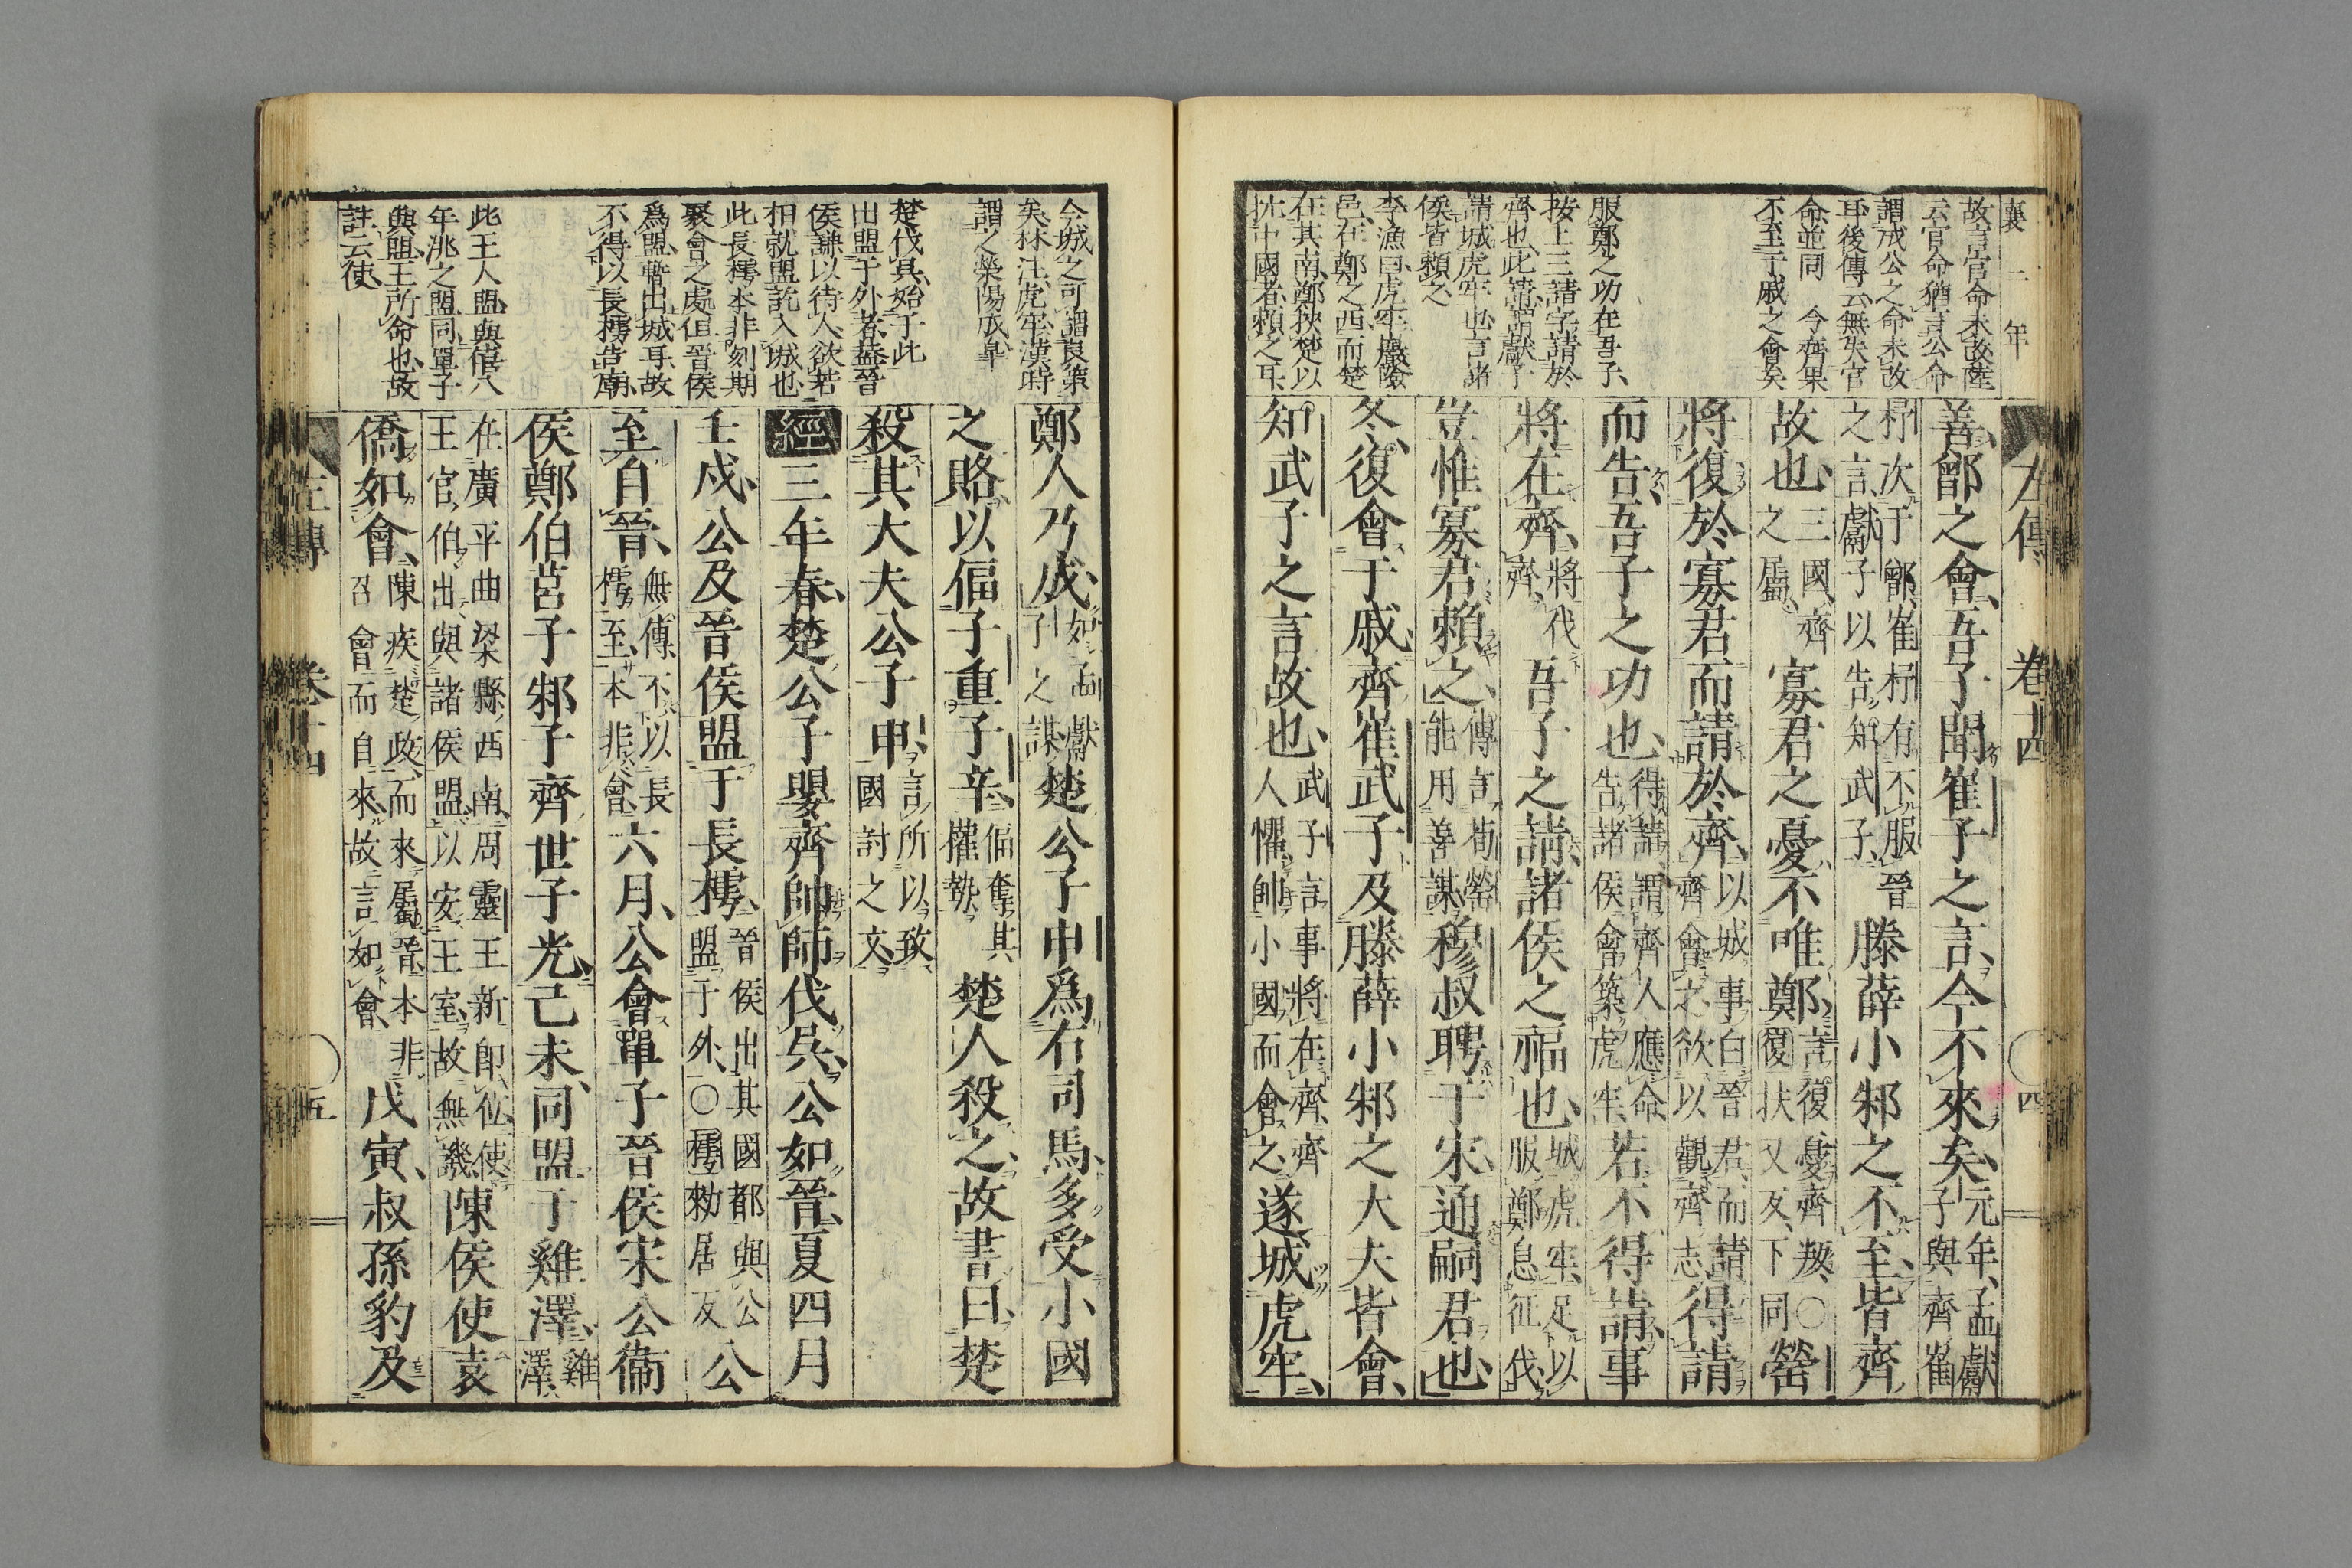 襄二年
故言官命未改陸
云官命猶言公命
謂成公之命未改
耳後傳云無失官
命並同　今齊果
不至于戚之會矣
服鄭之功在吾子
按上三請字請於
齊也此請請獻子
請城虎牢也言諸
侯皆賴之
李漁曰虎牢巖險
邑在鄭之西而楚
在其南鄭狄楚以
中國者賴之耳
左傳　卷十四　四
善鄫之會吾子聞崔子之言今不來矣元年孟獻子與齊崔
杼次于鄫崔杼有不服晉之言獻子以告知武子滕薛小邾之不至皆齊
故也三國齊之屬寡君之憂不唯鄭言復憂齊叛〇復扶又反下同罃
將復於寡君而請於齊以城事白晉君而請齊會之欲以觀齊志得請
而告吾子之功也得請謂齊人應命告諸侯會築虎牢若不得請事
將在齊將伐齊吾子之請諸侯之福也城虎牢足以服鄭息征伐
豈惟寡君賴之傳言荀罃能用善謀穆叔聘于宋通嗣君也
冬復會于戚齊崔武子及滕薛小邾之大夫皆會
知武子之言故也武子言事將在齊齊人懼帥小國而會之遂城虎牢
今城之可謂良策
矣林注虎牢漢時
謂之滎陽成皐
楚伐吳始于此
出盟于外者蓋晉
侯謙以待人欲若
相就盟說入城也
此長樗本非刻期
聚會之處但晉侯
爲盟暫出城耳故
不得以長樗告廟
此王人盟與僖八
年洮之盟同單子
與盟王所命也故
註云使
鄭人乃成如孟獻子之謀楚公子申爲右司馬多受小國
之賂以偪子重子辛偪奪其權勢楚人殺之故書曰楚
殺其大夫公子申言所以致國討之文
經三年春楚公子嬰齊帥師伐吳公如晉夏四月
壬戌公及晉侯盟于長樗晉侯出其國都與公盟于外〇樗勑居反公
至自晉無傳不以長樗至本非會六月公會單子晉侯宋公衞
侯鄭伯莒子邾子齊世子光己未同盟于雞澤雞澤
在廣平曲梁縣西南周靈王新卽位使王官伯出與諸侯盟以安王室故無譏陳侯使袁
僑如會陳疾楚政而來屬晉本非召會而自來故言如會戊寅叔孫豹及
左傳　卷十四　五